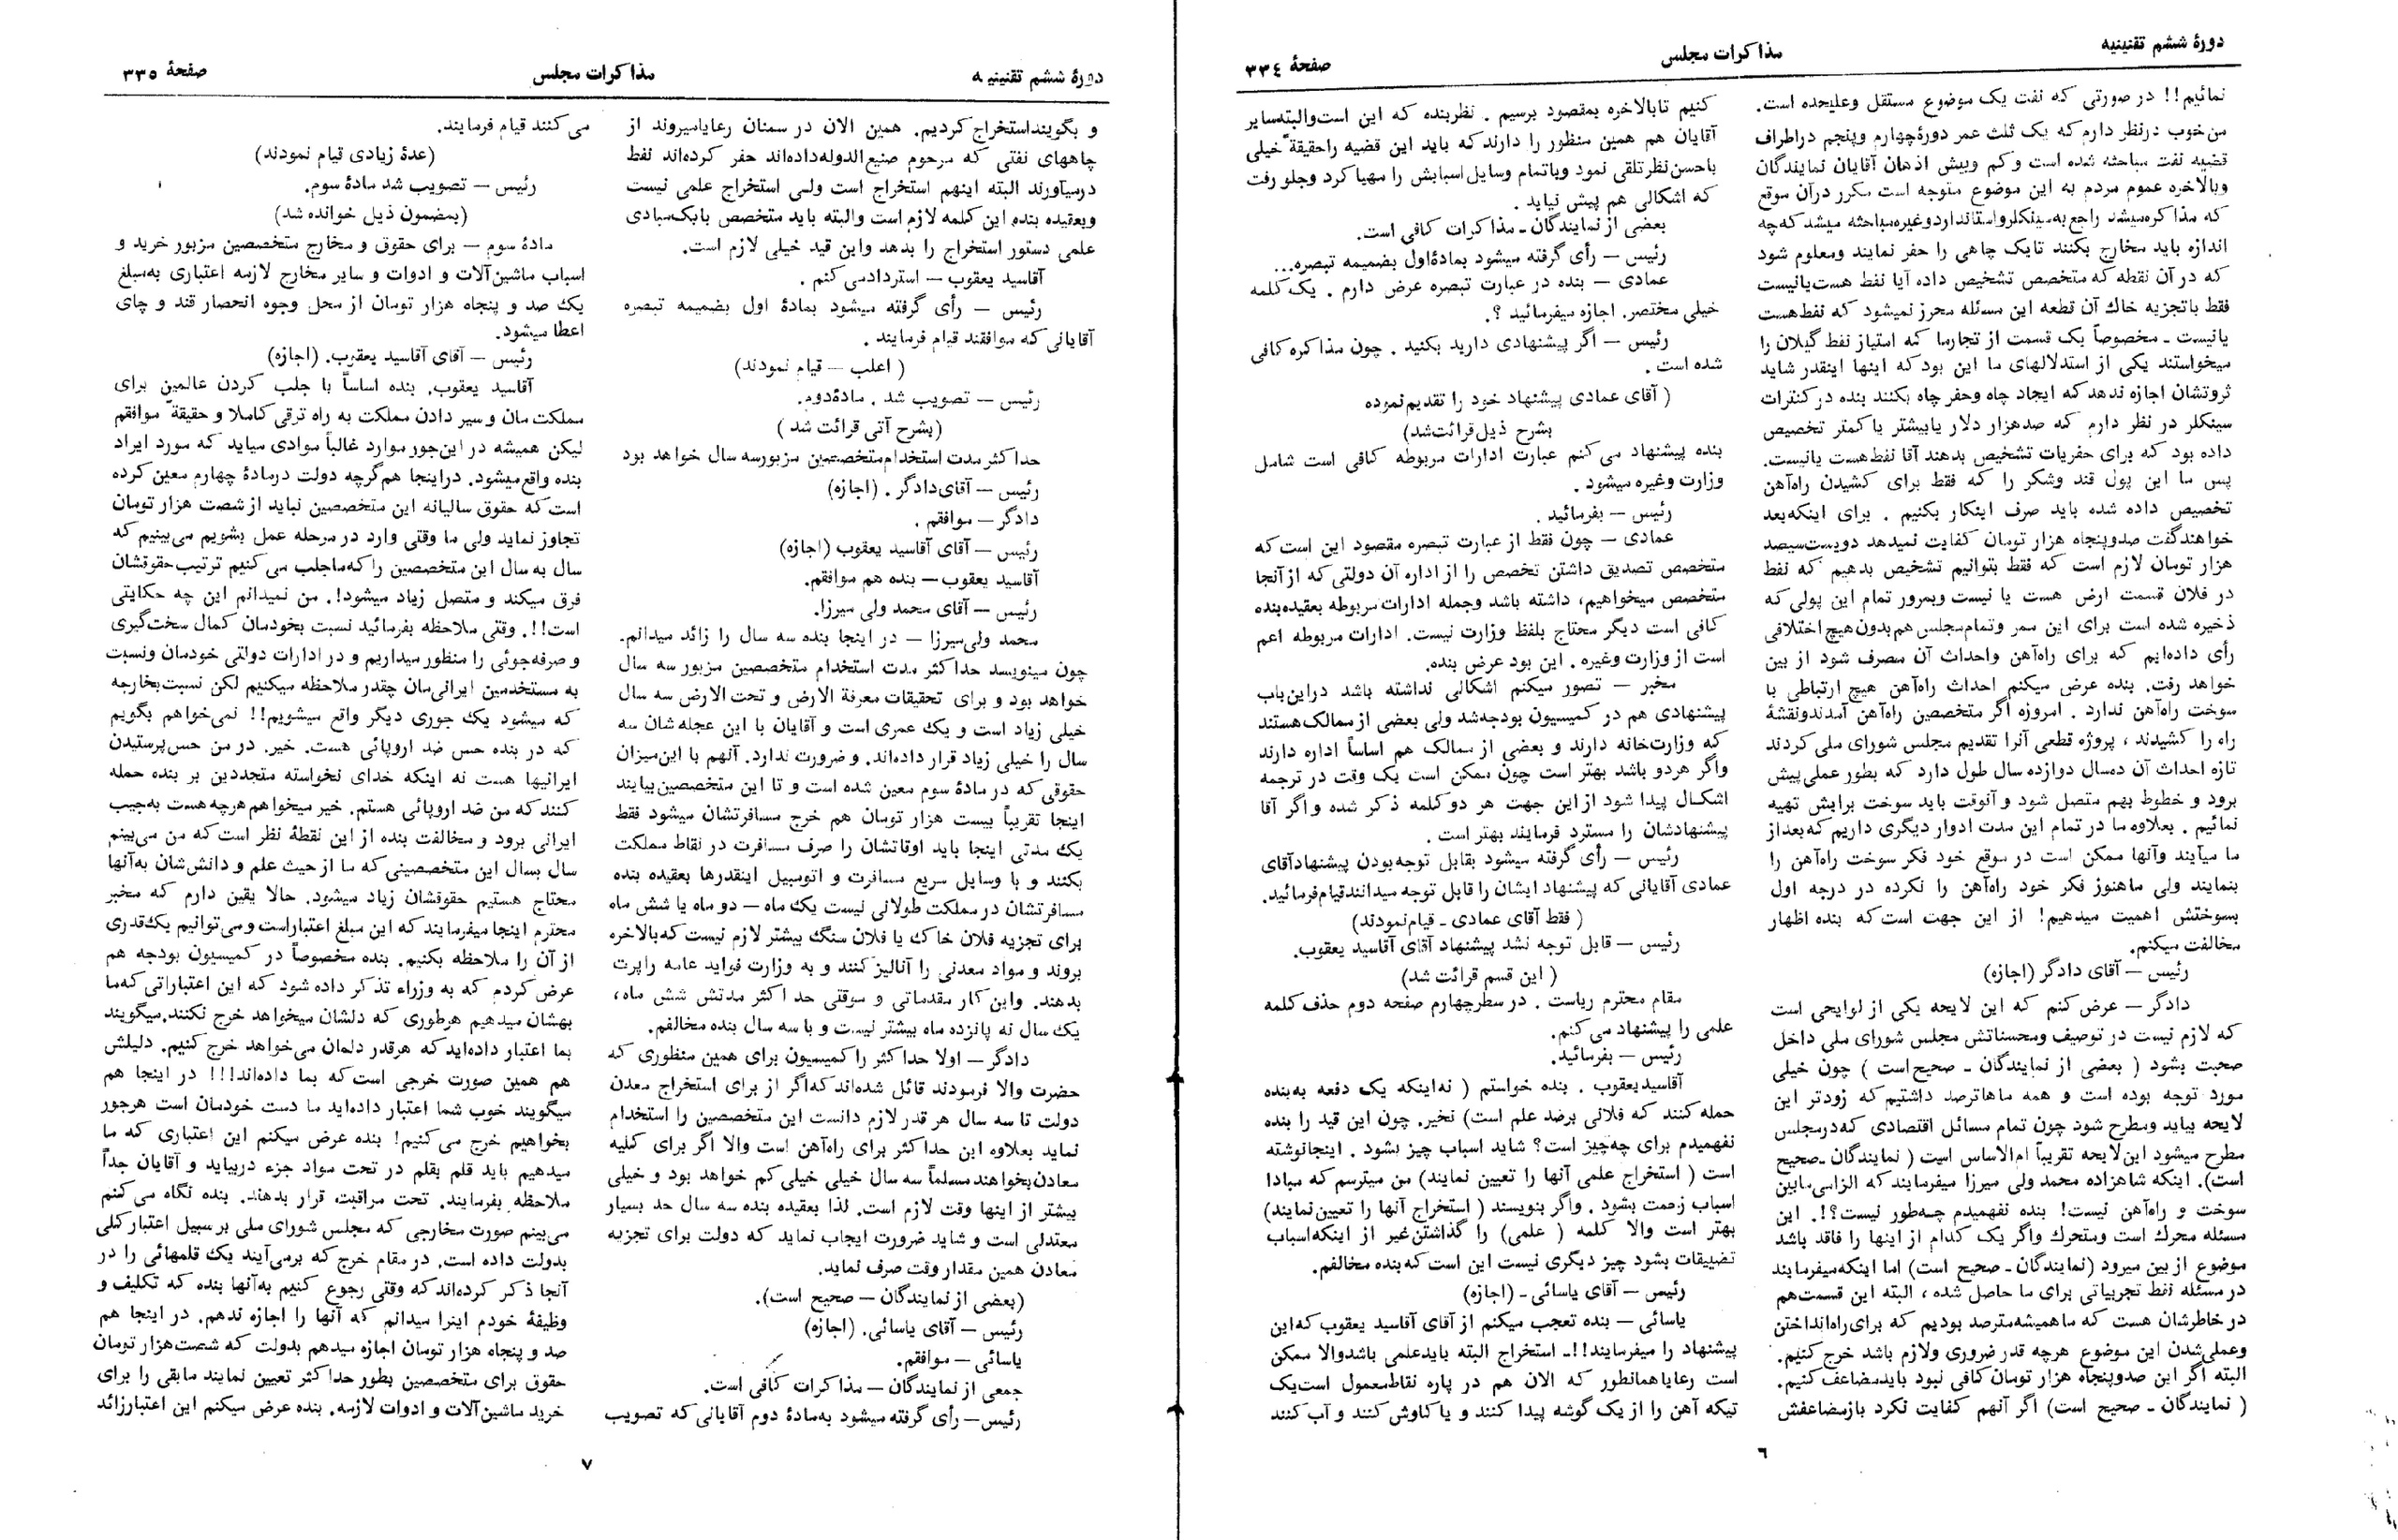 دورهٔ ششم تقنینیه
مذاکرات مجلس
صفحهٔ ۳۳۴
نمائیم!! در صورتی که نفت یک موضوع مستقل وعلیحده است.
من خوب درنظر دارم که یک ثلث عمر دورهٔ چهارم وپنجم دراطراف
قضیه نفت مباحثه شده است و کم وبیش اذهان آقایان نمایندگان
وبالاخره عموم مردم به این موضوع متوجه است مکرر درآن موقع
که مذاکره میشد راجع به سینکلر و استاندارد وغیره مباحثه میشد که چه
اندازه باید مخارج بکنند تا یک چاهی را حفر نمایند ومعلوم شود
که در آن نقطه که متخصص تشخیص داده آیا نفط هست یا نیست
فقط با تجزیه خاک آن قطعه این مسئله محرز نمیشود که نفط هست
یا نیست ـ مخصوصاً یک قسمت از تجار ما که امتیاز نفط گیلان را
میخواستند یکی از استدلالهای ما این بود که اینها اینقدر شاید
ثروتشان اجازه ندهد که ایجاد چاه وحفر چاه بکنند بنده در کنترات
سینکلر در نظر دارم که صد هزار دلار یا بیشتر یا کمتر تخصیص
داده بود که برای حفریات تشخیص بدهند آقا نفط هست یا نیست.
پس ما این پول قند وشکر را که فقط برای کشیدن راه آهن
تخصیص داده شده باید صرف اینکار بکنیم . برای اینکه بعد
خواهند گفت صد و پنجاه هزار تومان کفایت نمیدهد دویست سیصد
هزار تومان لازم است که فقط بتوانیم تشخیص بدهیم که نفط
در فلان قسمت ارض هست یا نیست وبمرور تمام این پولی که
ذخیره شده است برای این سمر وتمام مجلس هم بدون هیچ اختلافی
رأی داده‌ایم که برای راه‌آهن واحداث آن مصرف شود از بین
خواهد رفت. بنده عرض میکنم احداث راه‌آهن هیچ ارتباطی با
سوخت راه‌آهن ندارد . امروزه اگر متخصصین راه‌آهن آمدند ونقشهٔ
راه را کشیدند ، پروژه قطعی آنرا تقدیم مجلس شورای ملی کردند
تازه احداث آن ده سال دوازده سال طول دارد که بطور عملی پیش
برود و خطوط بهم متصل شود و آنوقت باید سوخت برایش تهیه
نمائیم . بعلاوه ما در تمام این مدت ادوار دیگری داریم که بعد از
ما میآیند وآنها ممکن است در موقع خود فکر سوخت راه‌آهن را
بنمایند ولی ما هنوز فکر خود راه‌آهن را نکرده در درجه اول
بسوختش اهمیت میدهیم! از این جهت است که بنده اظهار
مخالفت میکنم.
رئیس — آقای دادگر (اجازه)
دادگر — عرض کنم که این لایحه یکی از لوایحی است
که لازم نیست در توصیف ومحسناتش مجلس شورای ملی داخل
صحبت بشود ( بعضی از نمایندگان ـ صحیح است ) چون خیلی
مورد توجه بوده است و همه ماها ترصد داشتیم که زودتر این
لایحه بیاید ومطرح شود چون تمام مسائل اقتصادی که در مجلس
مطرح میشود این لایحه تقریباً ام‌الاساس است ( نمایندگان ـ صحیح
است). اینکه شاهزاده محمد ولی میرزا میفرمایند که الزامی مابین
سوخت و راه‌آهن نیست! بنده نفهمیدم چه‌طور نیست؟!. این
مسئله محرک است ومتحرک واگر یک کدام از اینها را فاقد باشد
موضوع از بین میرود (نمایندگان ـ صحیح است) اما اینکه میفرمایند
در مسئله نفط تجربیاتی برای ما حاصل شده ، البته این قسمت هم
در خاطرشان هست که ما همیشه مترصد بودیم که برای راه انداختن
وعملی شدن این موضوع هرچه قدر ضروری ولازم باشد خرج کنیم.
البته اگر این صد و پنجاه هزار تومان کافی نبود باید مضاعف کنیم.
( نمایندگان ـ صحیح است) اگر آنهم کفایت نکرد باز مضاعفش
کنیم تا بالاخره بمقصود برسیم . نظر بنده که این است والبته سایر
آقایان هم همین منظور را دارند که باید این قضیه را حقیقةً خیلی
باحسن نظر تلقی نمود وباتمام وسایل اسبابش را مهیا کرد وجلو رفت
که اشکالی هم پیش نیاید .
بعضی از نمایندگان ـ مذاکرات کافی است.
رئیس — رأی گرفته میشود بمادهٔ اول بضمیمه تبصره...
عمادی — بنده در عبارت تبصره عرض دارم . یک کلمه
خیلی مختصر. اجازه میفرمائید ؟.
رئیس — اگر پیشنهادی دارید بکنید . چون مذاکره کافی
شده است .
( آقای عمادی پیشنهاد خود را تقدیم نموده
بشرح ذیل قرائت شد)
بنده پیشنهاد می‌کنم عبارت ادارات مربوطه کافی است شامل
وزارت وغیره میشود .
رئیس — بفرمائید .
عمادی — چون فقط از عبارت تبصره مقصود این است که
متخصص تصدیق داشتن تخصص را از اداره آن دولتی که از آنجا
متخصص میخواهیم، داشته باشد وجمله ادارات مربوطه بعقیده بنده
کافی است دیگر محتاج بلفظ وزارت نیست. ادارات مربوطه اعم
است از وزارت وغیره . این بود عرض بنده.
مخبر — تصور میکنم اشکالی نداشته باشد دراین باب
پیشنهادی هم در کمیسیون بودجه شد ولی بعضی از ممالک هستند
که وزارت‌خانه دارند و بعضی از ممالک هم اساساً اداره دارند
واگر هردو باشد بهتر است چون ممکن است یک وقت در ترجمه
اشکال پیدا شود از این جهت هر دو کلمه ذکر شده و اگر آقا
پیشنهادشان را مسترد فرمایند بهتر است .
رئیس — رأی گرفته میشود بقابل توجه بودن پیشنهاد آقای
عمادی آقایانی که پیشنهاد ایشان را قابل توجه میدانند قیام فرمائید.
( فقط آقای عمادی ـ قیام نمودند)
رئیس — قابل توجه نشد پیشنهاد آقای آقاسید یعقوب.
( این قسم قرائت شد)
مقام محترم ریاست . در سطر چهارم صفحه دوم حذف کلمه
علمی را پیشنهاد می‌کنم.
رئیس — بفرمائید.
آقاسید یعقوب . بنده خواستم ( نه اینکه یک دفعه به بنده
حمله کنند که فلانی برضد علم است) نخیر. چون این قید را بنده
نفهمیدم برای چه‌چیز است؟ شاید اسباب چیز بشود . اینجا نوشته
است ( استخراج علمی آنها را تعیین نمایند) من میترسم که مبادا
اسباب زحمت بشود . واگر بنویسند ( استخراج آنها را تعیین نمایند)
بهتر است والا کلمه ( علمی) را گذاشتن غیر از اینکه اسباب
تضییقات بشود چیز دیگری نیست این است که بنده مخالفم.
رئیس — آقای یاسائی ـ (اجازه)
یاسائی — بنده تعجب میکنم از آقای آقاسید یعقوب که این
پیشنهاد را میفرمایند!!ـ استخراج البته باید علمی باشد والا ممکن
است رعایا همانطور که الان هم در پاره نقاط معمول است یک
تیکه آهن را از یک گوشه پیدا کنند و یا کاوش کنند و آب کنند
٦
دورهٔ ششم تقنینیه
مذاکرات مجلس
صفحهٔ ۳۳۵
و بگویند استخراج کردیم. همین الان در سمنان رعایا میروند از
چاههای نفتی که مرحوم صنیع‌الدوله داده‌اند حفر کرده‌اند نفط
درمیآورند البته اینهم استخراج است ولی استخراج علمی نیست
وبعقیده بنده این کلمه لازم است والبته باید متخصص با یک مبادی
علمی دستور استخراج را بدهد واین قید خیلی لازم است.
آقاسید یعقوب — استرداد می کنم .
رئیس — رأی گرفته میشود بمادهٔ اول بضمیمه تبصره
آقایانی که موافقند قیام فرمایند .
( اغلب — قیام نمودند)
رئیس — تصویب شد . مادهٔ دوم.
(بشرح آتی قرائت شد )
حداکثر مدت استخدام متخصصین مزبور سه سال خواهد بود
رئیس — آقای دادگر . (اجازه)
دادگر — موافقم .
رئیس — آقای آقاسید یعقوب (اجازه)
آقاسید یعقوب — بنده هم موافقم.
رئیس — آقای محمد ولی میرزا.
محمد ولی میرزا — در اینجا بنده سه سال را زائد میدانم.
چون مینویسد حداکثر مدت استخدام متخصصین مزبور سه سال
خواهد بود و برای تحقیقات معرفة الارض و تحت الارض سه سال
خیلی زیاد است و یک عمری است و آقایان با این عجله شان سه
سال را خیلی زیاد قرار داده‌اند. و ضرورت ندارد. آنهم با این میزان
حقوقی که در مادهٔ سوم معین شده است و تا این متخصصین بیایند
اینجا تقریباً بیست هزار تومان هم خرج مسافرتشان میشود فقط
یک مدتی اینجا باید اوقاتشان را صرف مسافرت در نقاط مملکت
بکنند و با وسایل سریع مسافرت و اتومبیل اینقدرها بعقیده بنده
مسافرتشان در مملکت طولانی نیست یک ماه — دو ماه یا شش ماه
برای تجزیه فلان خاک یا فلان سنگ بیشتر لازم نیست که بالاخره
بروند و مواد معدنی را آنالیز کنند و به وزارت فواید عامه راپرت
بدهند. واین کار مقدماتی و موقتی حد اکثر مدتش شش ماه،
یک سال نه پانزده ماه بیشتر نیست و با سه سال بنده مخالفم.
دادگر — اولا حداکثر را کمیسیون برای همین منظوری که
حضرت والا فرمودند قائل شده‌اند که اگر از برای استخراج معدن
دولت تا سه سال هر قدر لازم دانست این متخصصین را استخدام
نماید بعلاوه این حداکثر برای راه‌آهن است والا اگر برای کلیه
معادن بخواهند مسلماً سه سال خیلی خیلی کم خواهد بود و خیلی
بیشتر از اینها وقت لازم است. لذا بعقیده بنده سه سال حد بسیار
معتدلی است و شاید ضرورت ایجاب نماید که دولت برای تجزیه
معادن همین مقدار وقت صرف نماید.
(بعضی از نمایندگان — صحیح است).
رئیس — آقای یاسائی. (اجازه)
یاسائی — موافقم.
جمعی از نمایندگان — مذاکرات کافی است.
رئیس — رأی گرفته میشود به مادهٔ دوم آقایانی که تصویب
می کنند قیام فرمایند.
(عدهٔ زیادی قیام نمودند)
رئیس — تصویب شد مادهٔ سوم.
(بمضمون ذیل خوانده شد)
مادهٔ سوم — برای حقوق و مخارج متخصصین مزبور خرید و
اسباب ماشین‌آلات و ادوات و سایر مخارج لازمه اعتباری به‌مبلغ
یک صد و پنجاه هزار تومان از محل وجوه انحصار قند و چای
اعطا میشود.
رئیس — آقای آقاسید یعقوب. (اجازه)
آقاسید یعقوب. بنده اساساً با جلب کردن عالمین برای
مملکت مان و سیر دادن مملکت به راه ترقی کاملا و حقیقةً موافقم
لیکن همیشه در این‌جور موارد غالباً موادی میاید که مورد ایراد
بنده واقع میشود. در اینجا هم گرچه دولت در مادهٔ چهارم معین کرده
است که حقوق سالیانه این متخصصین نباید از شصت هزار تومان
تجاوز نماید ولی ما وقتی وارد در مرحله عمل بشویم می‌بینیم که
سال به سال این متخصصین را که ما جلب می کنیم ترتیب حقوقشان
فرق میکند و متصل زیاد میشود!. من نمیدانم این چه حکایتی
است!!. وقتی ملاحظه بفرمائید نسبت بخودمان کمال سخت‌گیری
و صرفه‌جوئی را منظور میداریم و در ادارات دولتی خودمان ونسبت
به مستخدمین ایرانی‌مان چقدر ملاحظه میکنیم لکن نسبت بخارجه
که میشود یک جوری دیگر واقع میشویم!! نمی‌خواهم بگویم
که در بنده حس ضد اروپائی هست. خیر. در من حس پرستیدن
ایرانیها هست نه اینکه خدای نخواسته متجددین بر بنده حمله
کنند که من ضد اروپائی هستم. خیر میخواهم هرچه هست به جیب
ایرانی برود و مخالفت بنده از این نقطهٔ نظر است که من می‌بینم
سال بسال این متخصصینی که ما از حیث علم و دانش‌شان به‌آنها
محتاج هستیم حقوقشان زیاد میشود. حالا یقین دارم که مخبر
محترم اینجا میفرمایند که این مبلغ اعتبار است و می توانیم یک قدری
از آن را ملاحظه بکنیم. بنده مخصوصاً در کمیسیون بودجه هم
عرض کردم که به وزراء تذکر داده شود که این اعتباراتی که ما
بهشان میدهیم هرطوری که دلشان میخواهد خرج نکنند. میگویند
بما اعتبار داده‌اید که هرقدر دلمان می خواهد خرج کنیم. دلیلش
هم همین صورت خرجی است که بما داده‌اند!!! در اینجا هم
میگویند خوب شما اعتبار داده‌اید ما دست خودمان است هرجور
بخواهیم خرج می کنیم! بنده عرض میکنم این اعتباری که ما
میدهیم باید قلم بقلم در تحت مواد جزء دربیاید و آقایان جداً
ملاحظه بفرمایند. تحت مراقبت قرار بدهند. بنده نگاه می کنم
می‌بینم صورت مخارجی که مجلس شورای ملی بر سبیل اعتبار کلی
بدولت داده است. در مقام خرج که برمی‌آیند یک قلمهائی را در
آنجا ذکر کرده‌اند که وقتی رجوع کنیم به‌آنها بنده که تکلیف و
وظیفهٔ خودم اینرا میدانم که آنها را اجازه ندهم. در اینجا هم
صد و پنجاه هزار تومان اجازه میدهم بدولت که شصت هزار تومان
حقوق برای متخصصین بطور حداکثر تعیین نمایند مابقی را برای
خرید ماشین‌آلات و ادوات لازمه. بنده عرض میکنم این اعتبار زائد
۷